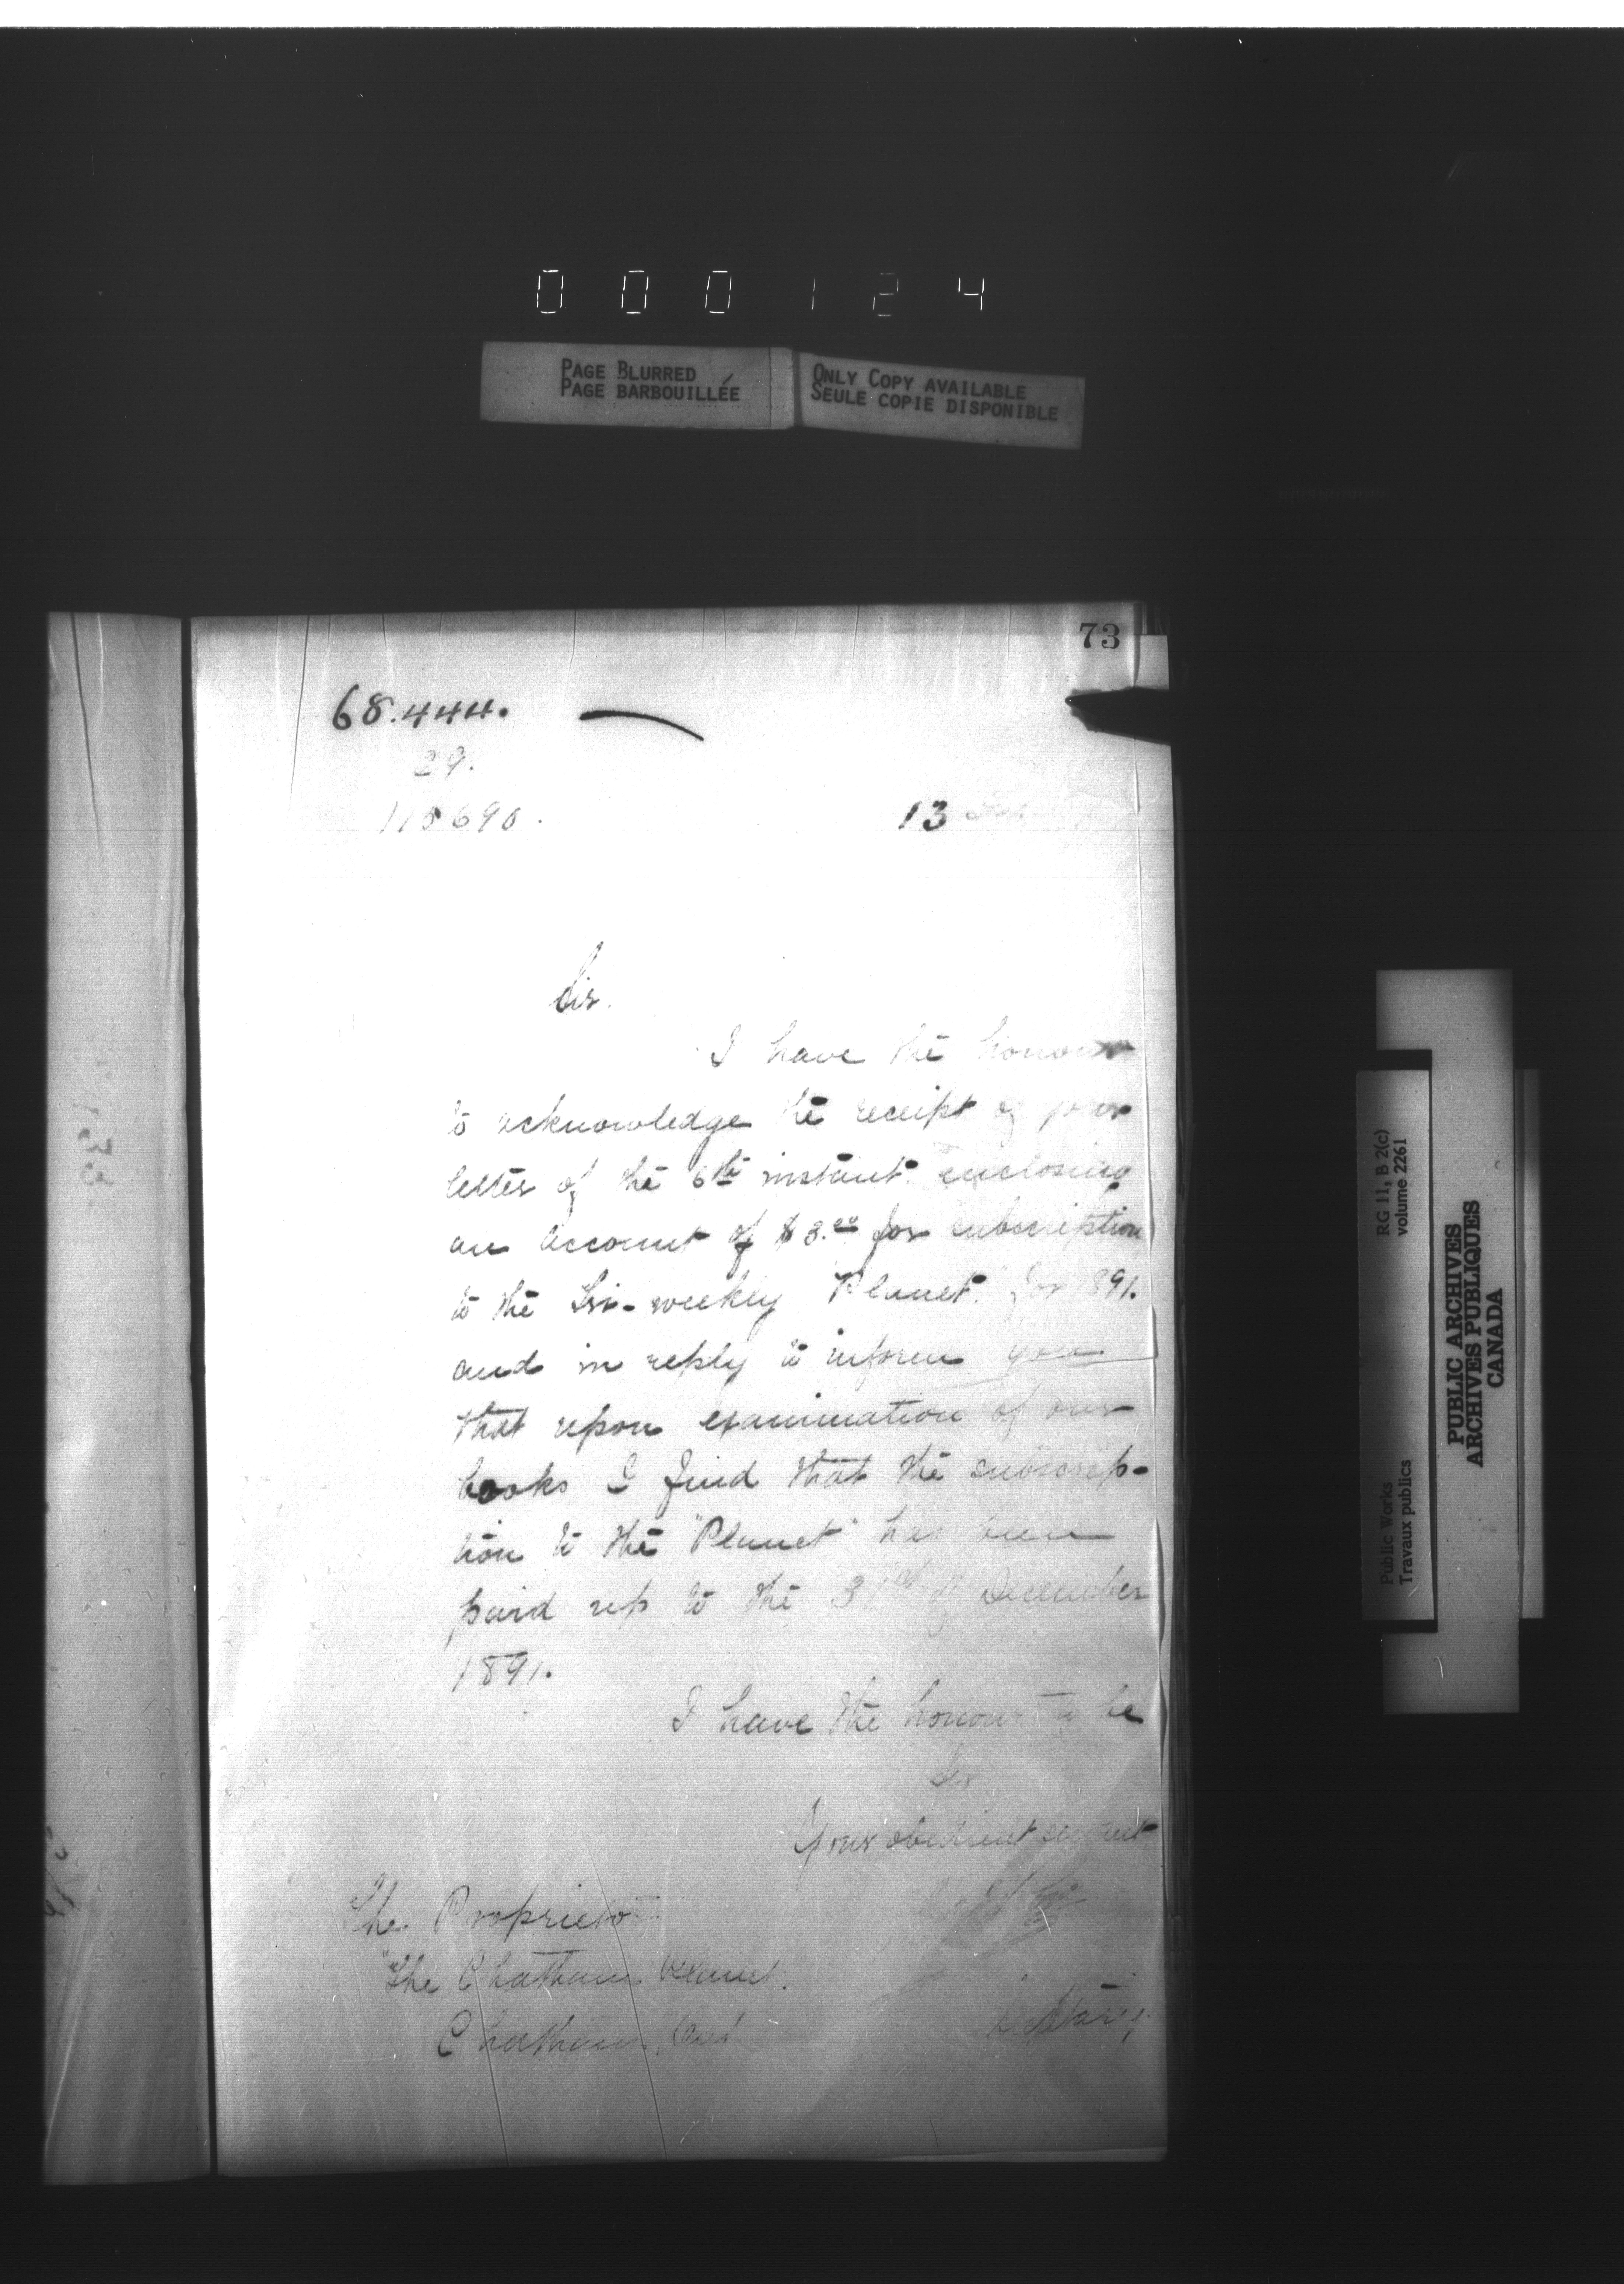 0 0 0 1 2 4
PAGE BLURRED
PAGE BARBOUILLÉE
ONLY COPY AVAILABLE
SEULE COPIE DISPONIBLE
73
68.444.
29.
13
Sir.
I have the honour
to acknowledge the receipt of your
letter of the 6th instant enclosing
an account of $3.00 for subscription
to the Tri-weekly "Planet" for 1891.
and in reply to inform you
that upon examination of our
books I find that the subscrip-
tion to the "Planet" has been
paid up to the 31st of December
1891.
I have the honour to be
Sir
Your obedient servant
The Proprietor
"The Chatham Planet.
Chatham, Ont
Secretary.
RG 11, B 2(c)
volume 2261
Public Works
Travaux publics
PUBLIC ARCHIVES
ARCHIVES PUBLIQUES
CANADA